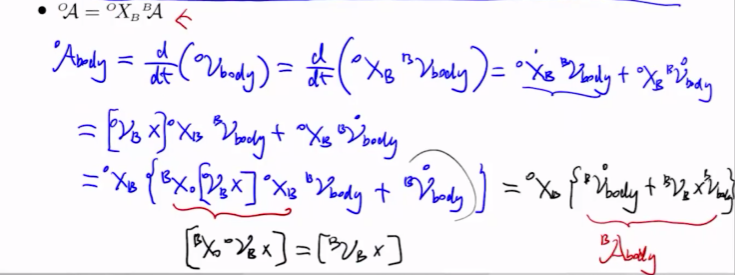 • ᴼA = ᴼX_B ᴮA
°A_body = d/dt(°V_body) = d/dt(°X_B ᴮV_body) = °Ẋ_B ᴮV_body + °X_B ᴮV̊_body
= [°V_B ×]°X_B ᴮV_body + °X_B ᴮV̊_body
= °X_B {ᴮX_o[°V_B ×]°X_B ᴮV_body + ᴮV̊_body} = °X_B {ᴮV̊_body + ᴮV_B × ᴮV_body}
[ᴮX_o °V_B ×] = [ᴮV_B ×] ᴮA_body